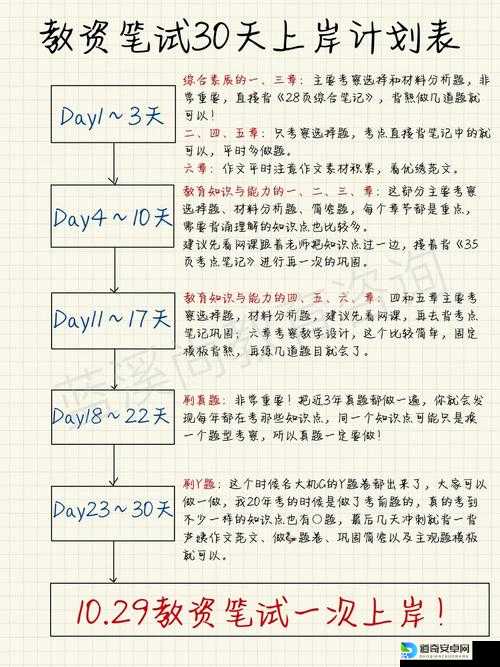 教资笔试30天上岸计划表
综合素质的一、三章：主要考察选择和材料分析题，非
常重要，直接背《28页综合笔记》，背熟做几道题就
可以！
Day1～3天
二、四、五章：只考察选择题，考点直接背笔记中的就
可以，平时多做题。
六章：作文平时注意作文素材积累，看优秀范文。
教育知识与能力的一、二、三章：这部分主要考察
选择题、材料分析题、简答题，每个章节都是重点，
需要背诵理解的知识点也比较多。
Day4～10天
建议先看网课跟着老师把知识点过一边，接着背《35
页考点笔记》进行再一次的巩固。
教育知识与能力的四、五、六章：四和五章主要考
察选择题，材料分析题，建议先看网课，再去背考点
Day11～17天
笔记巩固；六章考察教学设计，这个比较简单，固定
模板背熟，再练几道题目就会了。
刷真题：非常重要！把近3年真题都做一遍，你就会发
现每年都在考那些知识点，同一个知识点可能只是换
Day18～22天
一个题型考察，所以真题一定要做！
刷Y题：这个时候各大机G的Y题卷都出来了，大家可以
做一做，我20年考的时候是做了考前题的，真的考到
Day23～30天
不少一样的知识点也有〇题，最后几天冲刺就背一背
作文范文、做题卷、巩固简答以及主观题模板
就可以。
10.29教资笔试一次上岸！
蓝溪 咨询
道奇安卓网